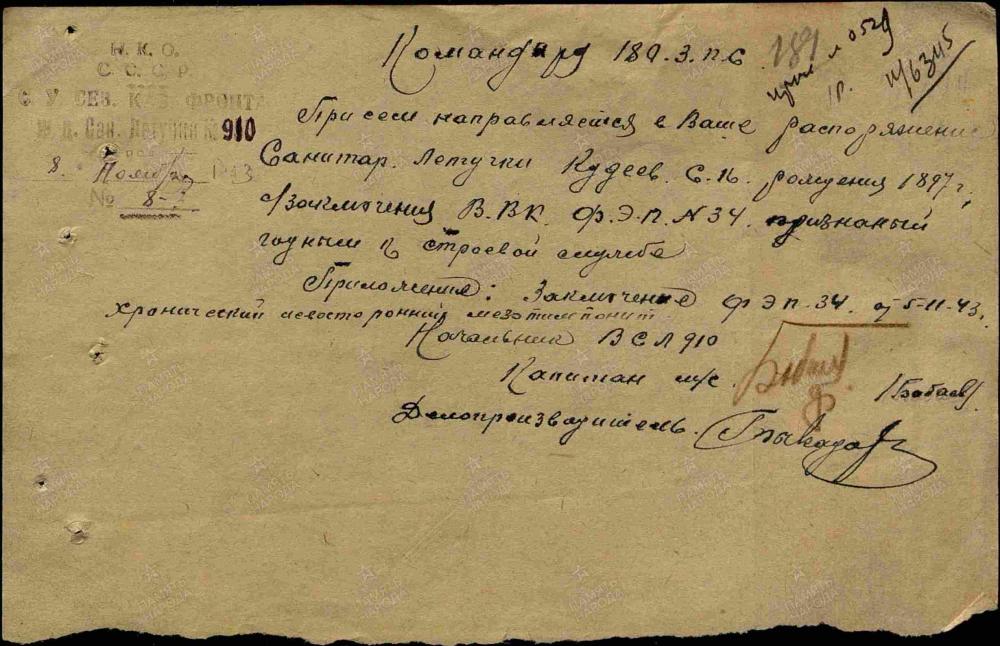 Н. К. О.
С. С. С. Р.
С. У. СЕВ. КАВ. ФРОНТА
В. Сан. Летучки № 910
8. Ноября 1943
№ 8-
Командиру 180.З.П.С. 189
10529
1р. 11/6345
При сем направляется в Ваше распоряжение
Санитар. Летучки Кудеев С.И. рождения 1897 г,
заключения В.В.К. Ф.Э.П. N 34. признаный
годным к строевой службе
Приложения: Заключение ФЭП-34. от 5-11-43.
хронический левосторонний мезотимпонит
Начальник ВСЛ 910
Капитан м/с. /Бабаев/
Делопроизводитель.
ПАМЯТЬ НАРОДА